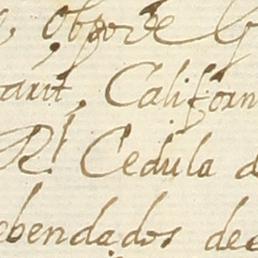 Obpo de
arit, Californ
Rl Cedula d
ebendados de